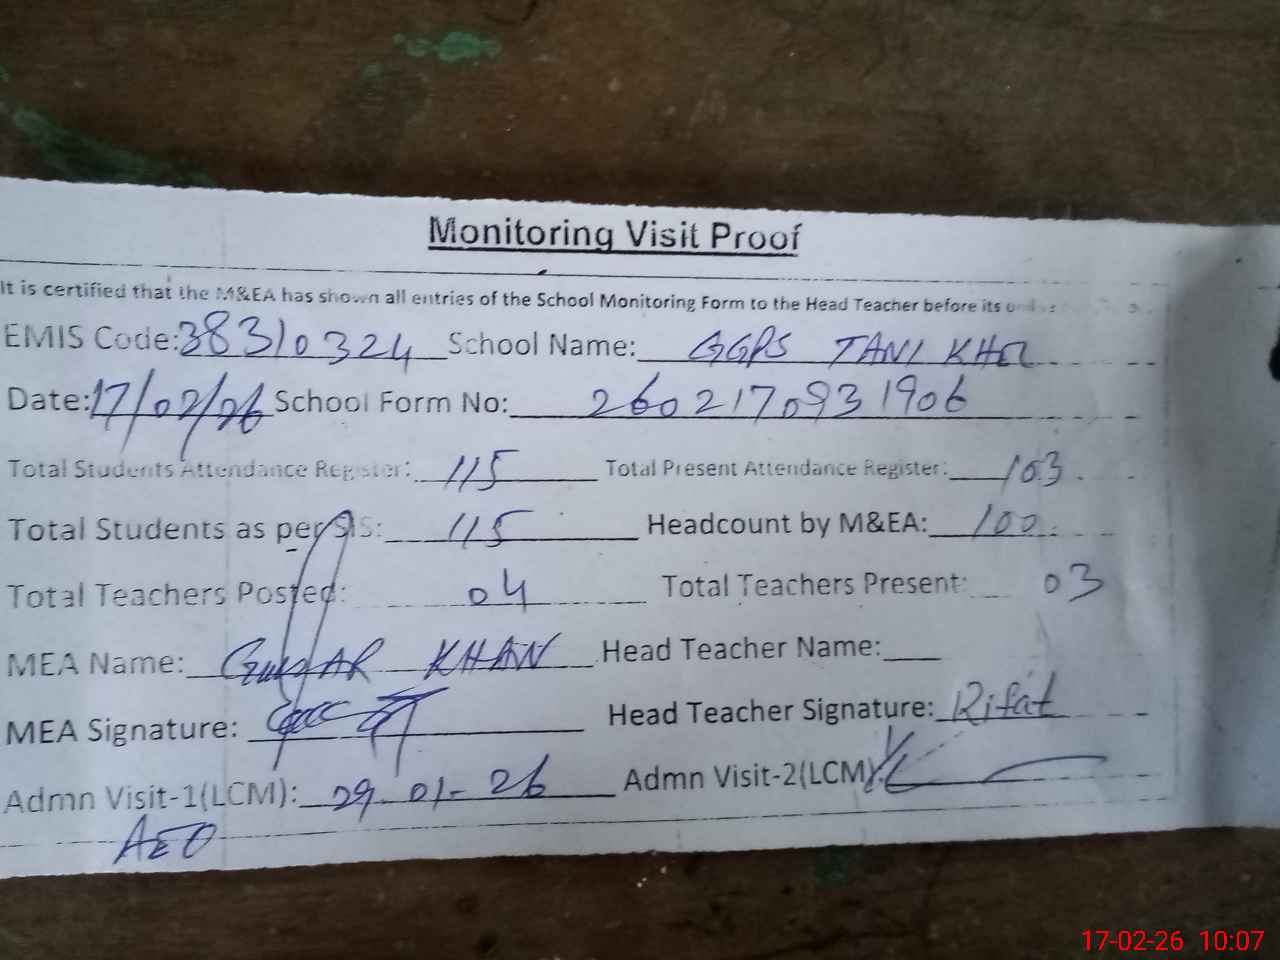 Monitoring Visit Proof
It is certified that the M&EA has shown all entries of the School Monitoring Form to the Head Teacher before its
EMIS Code: 38310324 School Name: GGPS TANI KHEL
Date: 17/02/26 School Form No: 2602170931906
Total Students Attendance Register: 115 Total Present Attendance Register: 103
Total Students as per SIS: 115 Headcount by M&EA: 100
Total Teachers Posted: 04 Total Teachers Present: 03
MEA Name: KHAN Head Teacher Name:
MEA Signature: Head Teacher Signature: Rifat
Admn Visit-1(LCM): 29-01-26 Admn Visit-2(LCM):
AEO
17-02-26 10:07